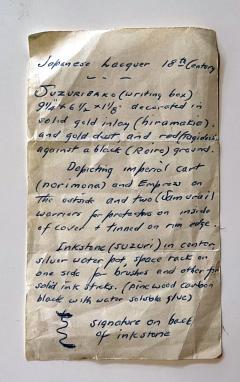 Japanese Lacquer 18th Century
SUZURIBAKO (writing box)
9 1/4" x 6 1/2 x 1 1/8" decorated in
solid gold inlay (hiramakie).
and gold dust, and red
against a black (Roiro) ground.
Depicting imperial cart
(norimono) and Empress on
the outside and two (Samurai)
warriors for protection on inside
of cover + tinned on rim edge.
Inkstone (suzuri) in center,
silver water pot, space rack on
one side for brushes and other for
solid ink sticks. (pinewood carbon
black with water soluble glue)
signature on back
of inkstone